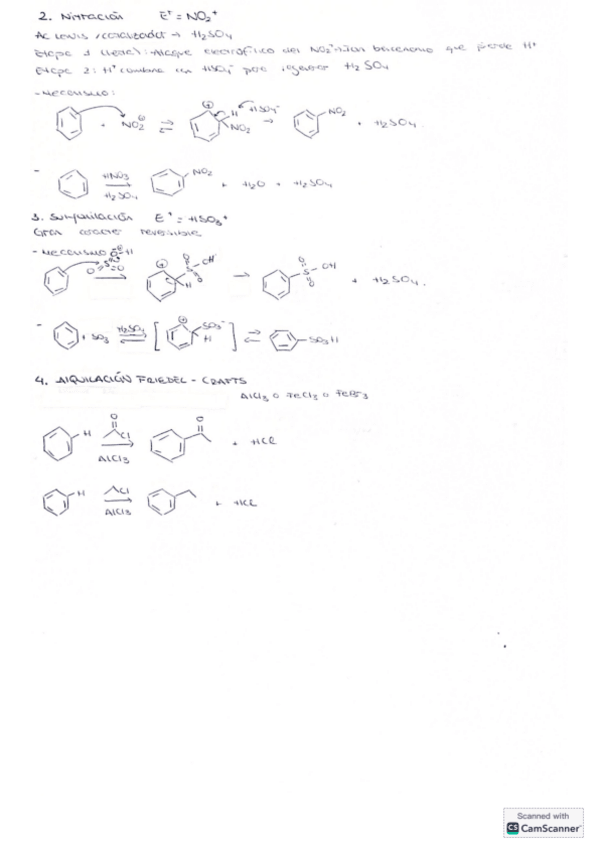 2. Nitración E⁺ = NO₂⁺
Ac Lewis /catalizador → H₂SO₄
Etapa 1 (lenta): Ataque electrofílico del NO₂⁺ al benceno que pierde H⁺
Etapa 2: H⁺ combina con HSO₄⁻ para H₂SO₄
- Mecanismo:
+ NO₂ ⊕ ⇌ ⊕ H HSO₄⁻ NO₂ → NO₂ + H₂SO₄.
- HNO₃ H₂SO₄ → NO₂ + H₂O + H₂SO₄
3. E⁺ = HSO₃⁺
Gran carácter reversible
- Mecanismo
O=S=O → ⊕ O S OH O H → O S OH O + H₂SO₄.
- + SO₃ H₂SO₄ ⇌ [ ⊕ SO₃⁻ H ] ⇌ SO₃H
4. AlQUILACIÓN FRIEDEL - CRAFTS
AlCl₃ o FeCl₃ o FeBr₃
H O Cl AlCl₃ → O + HCl
H Cl AlCl₃ → + HCl
Scanned with
CS CamScanner